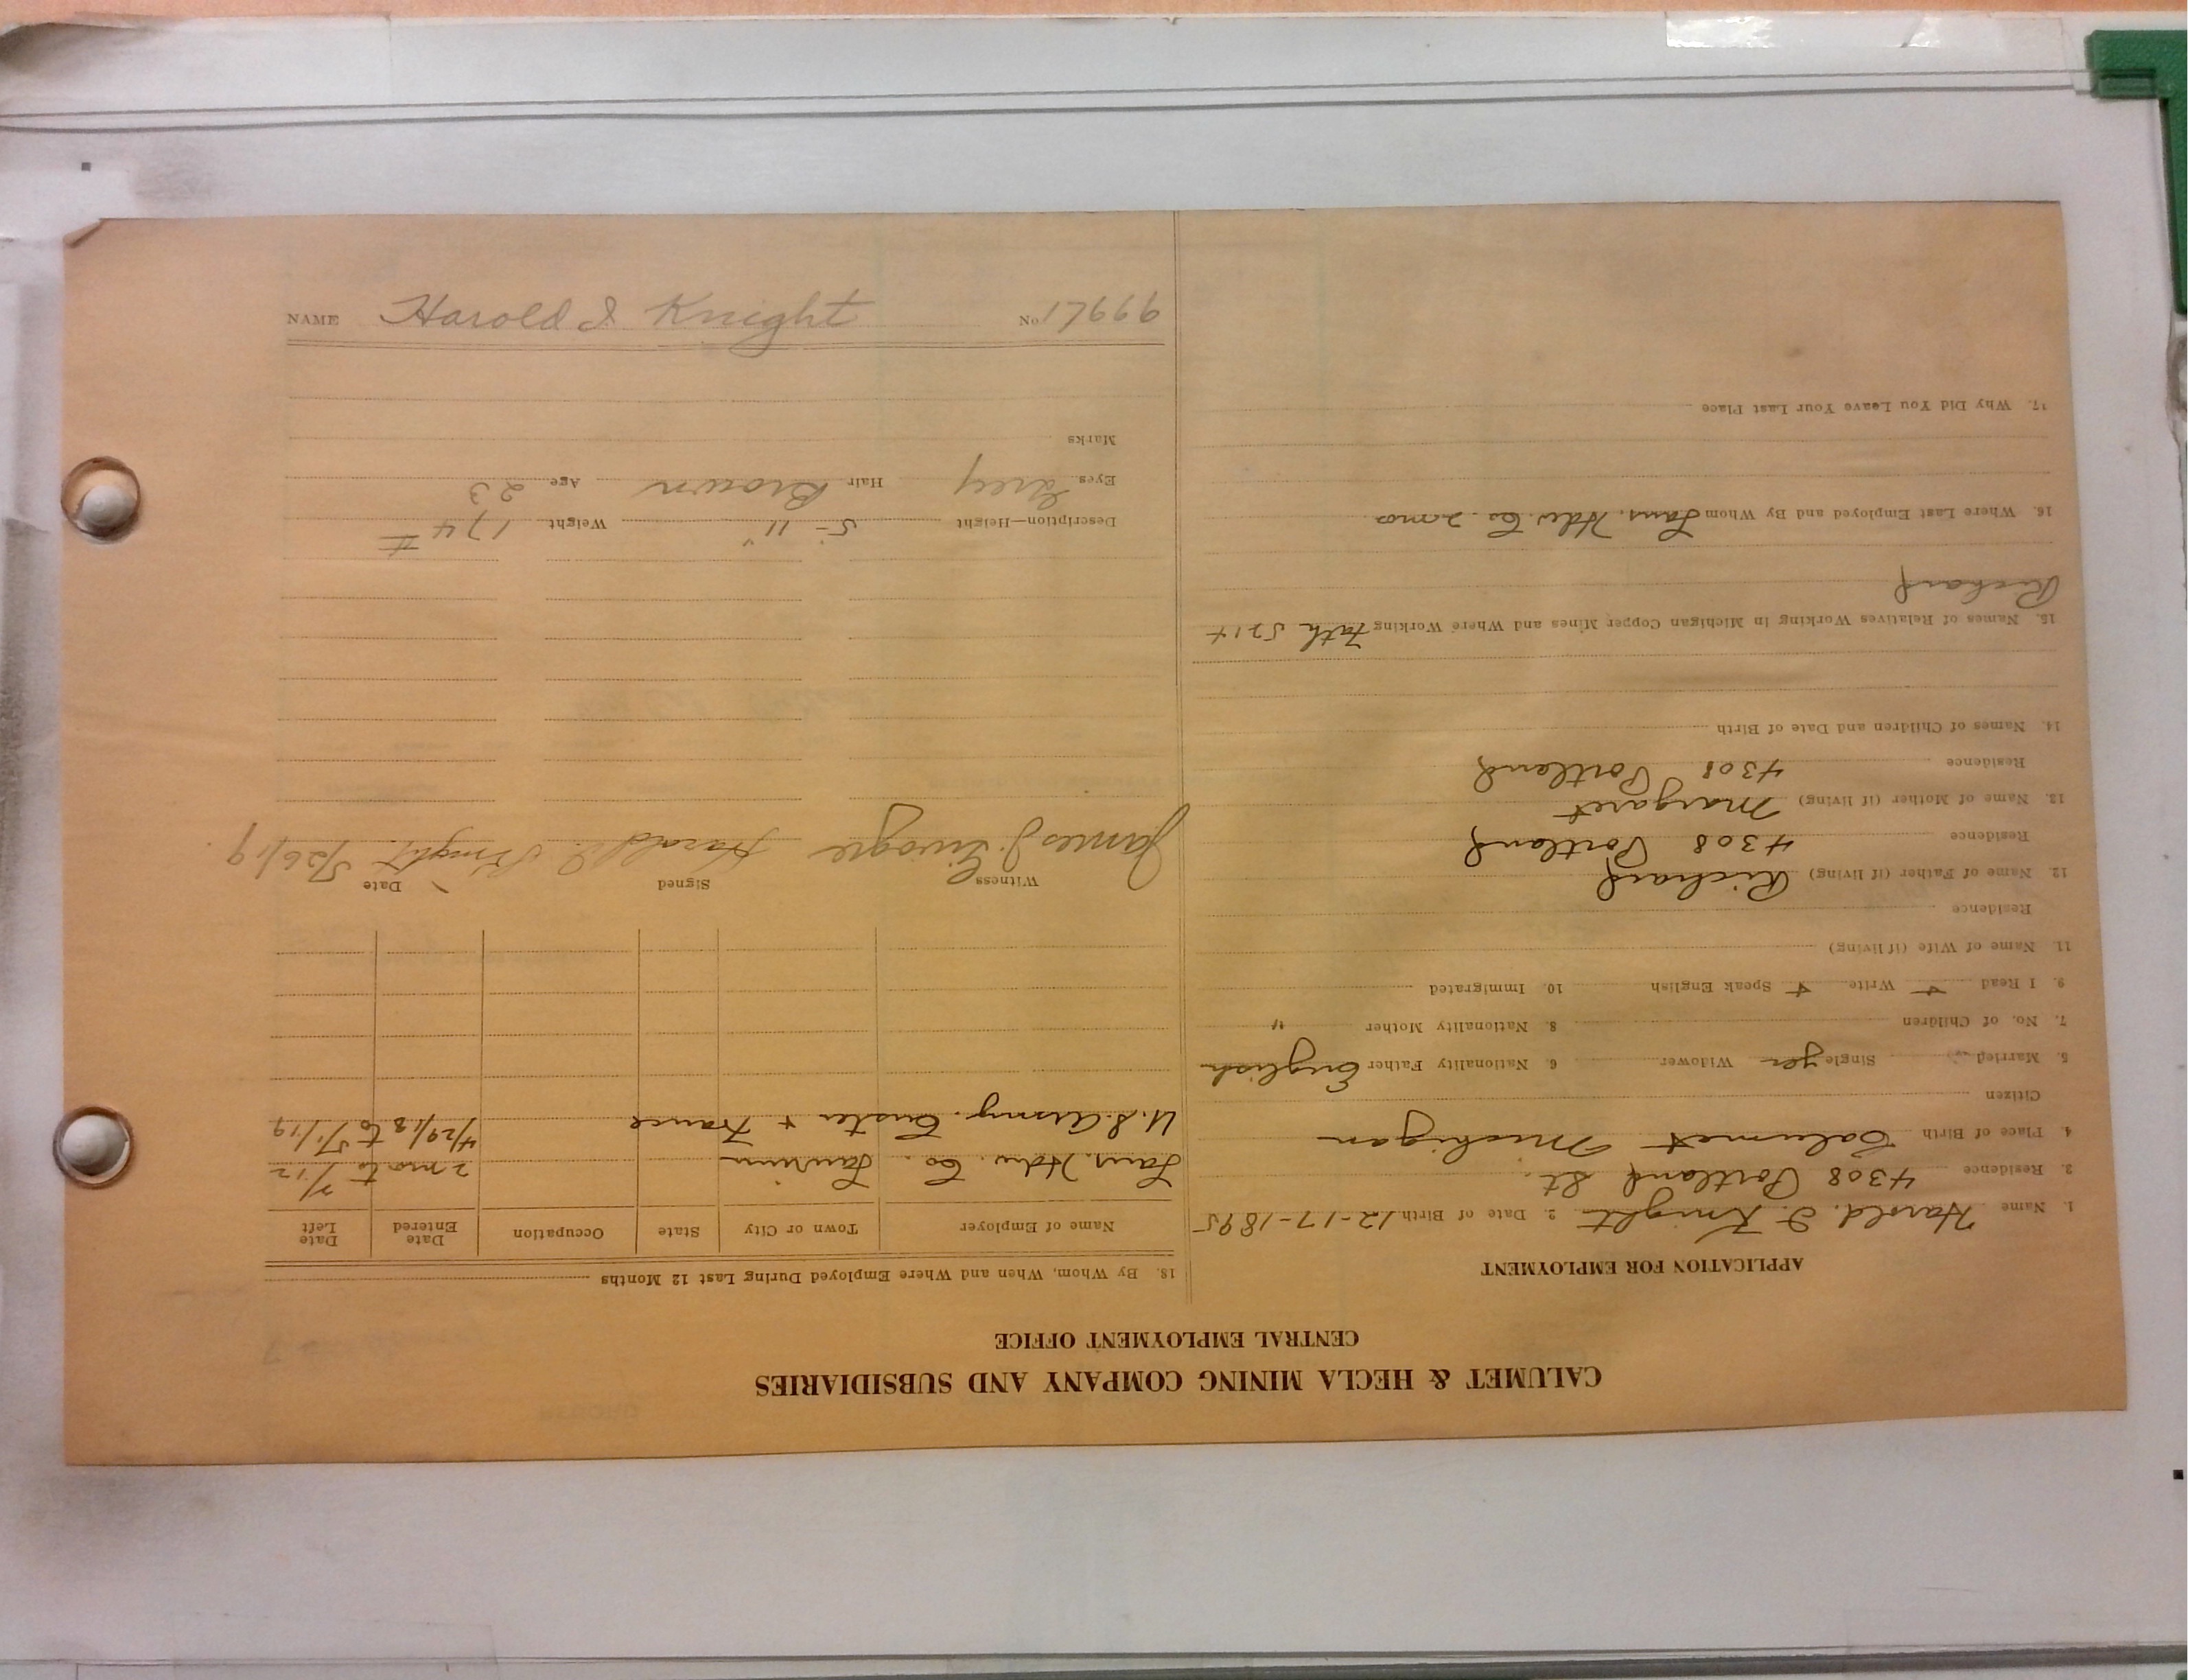 CALUMET & HECLA MINING COMPANY AND SUBSIDIARIES
CENTRAL EMPLOYMENT OFFICE
APPLICATION FOR EMPLOYMENT
1. Name Harold. I. Knight 2. Date of Birth 12-17-1895
3. Residence 4308 Portland St.
4. Place of Birth Calumet Michigan
Citizen
5. Married Single yes Widower 6. Nationality Father English
7. No. of Children 8. Nationality Mother "
9. I Read + Write + Speak English 10. Immigrated
11. Name of Wife (if living)
Residence
12. Name of Father (if living) Richard
Residence 4308 Portland
13. Name of Mother (if living) Margaret
Residence 4308 Portland
14. Names of Children and Date of Birth
15. Names of Relatives Working in Michigan Copper Mines and Where Working Fath 5214
Richard
16. Where Last Employed and By Whom Hdw. Co. 2 mo
17. Why Did You Leave Your Last Place
18. By Whom, When and Where Employed During Last 12 Months
Name of Employer Town or City State Occupation Date Entered Date Left
Hdw. Co. Laurium 2 mo to 7/12
U.S. Army. Custer + France 4/29/18 to 5/1/19
Witness Signed Date
James J. Harold I. Knight. 5/26/19
Description—Height 5' - 11" Weight 174 #
Eyes Grey Hair Brown Age 23
Marks
NAME Harold I. Knight No. 17669